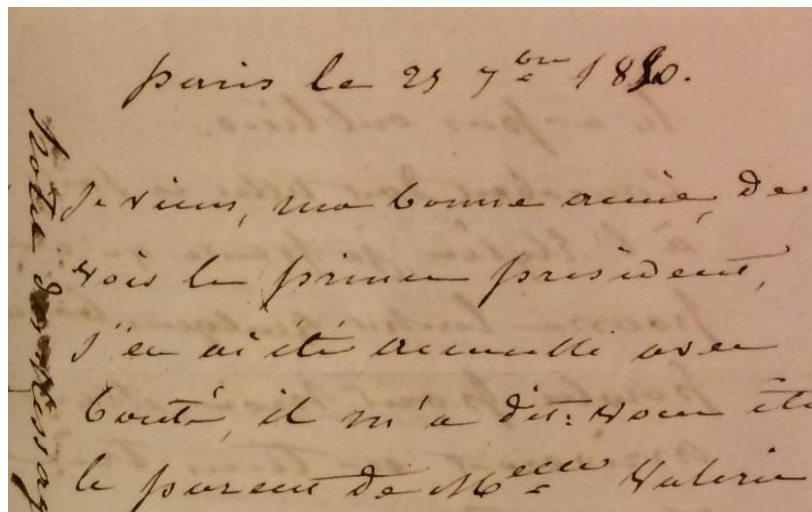 paris le 25 7bre 18 0.
Je viens, ma bonne amie, de
voir le premier président,
j'en ai été accueilli avec
bonté, il m'a dit: vous ête
le parent de Melle Valerie
notre